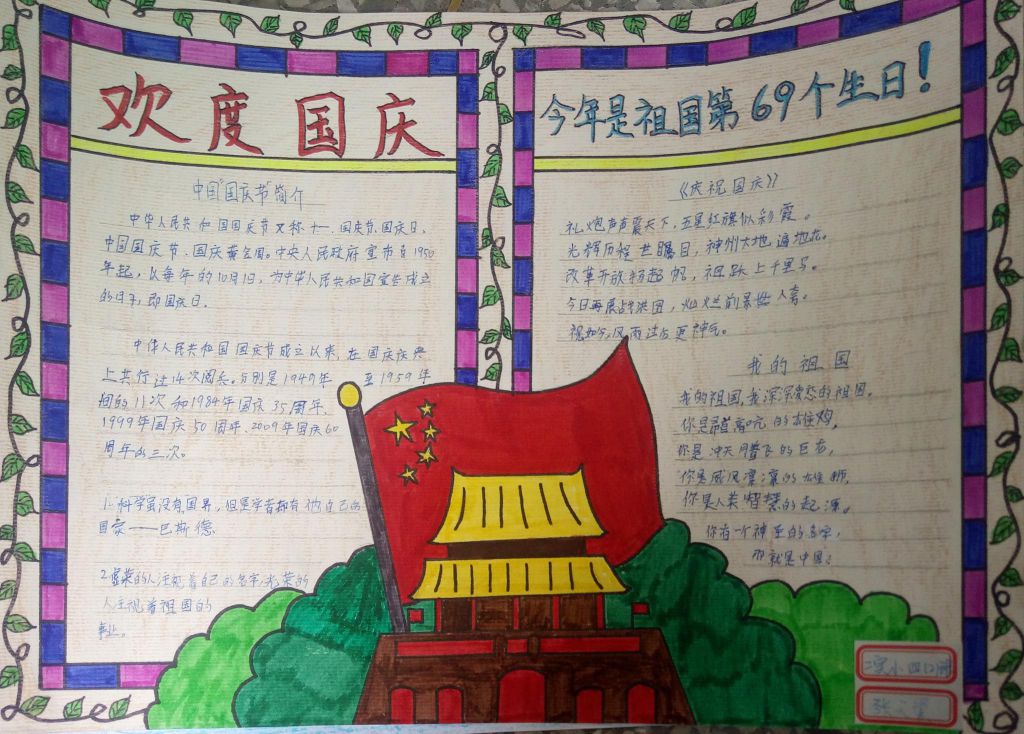 欢度国庆
中国"国庆节"简介
中华人民共和国国庆节又称十一、国庆节、国庆日、
中国国庆节、国庆黄金周。中央人民政府宣布自1950
年起,以每年的10月1日,为中华人民共和国宣告成立
的日子,即国庆日。
中华人民共和国国庆节成立以来,在国庆庆典
上共行过14次阅兵。分别是1949年 至1959年
间的11次和1984年国庆35周年、
1999年国庆50周年、2009年国庆60
周年的三次。
1.科学虽没有国界,但是学者却有他自己的
国家——巴斯德
2.虚荣的人注视着自己的名字,光荣的
人注视着祖国的
事业。
今年是祖国第69个生日!
《庆祝国庆》
礼炮声声震天下,五星红旗似彩霞。
光辉历程世瞩目,神州大地遍地花。
改革开放扬起帆,祖跃上千里马。
今日再展战洪图,灿烂前景世人夸。
视如今,风雨过后更神气。
我的祖国
我的祖国,我深深爱恋的祖国。
你是高亢的雄鸡,
你是冲天腾飞的巨龙,
你是威风凛凛的雄狮,
你是人类智慧的起源。
你有一个神圣的名字,
那就是中国!
小四
张